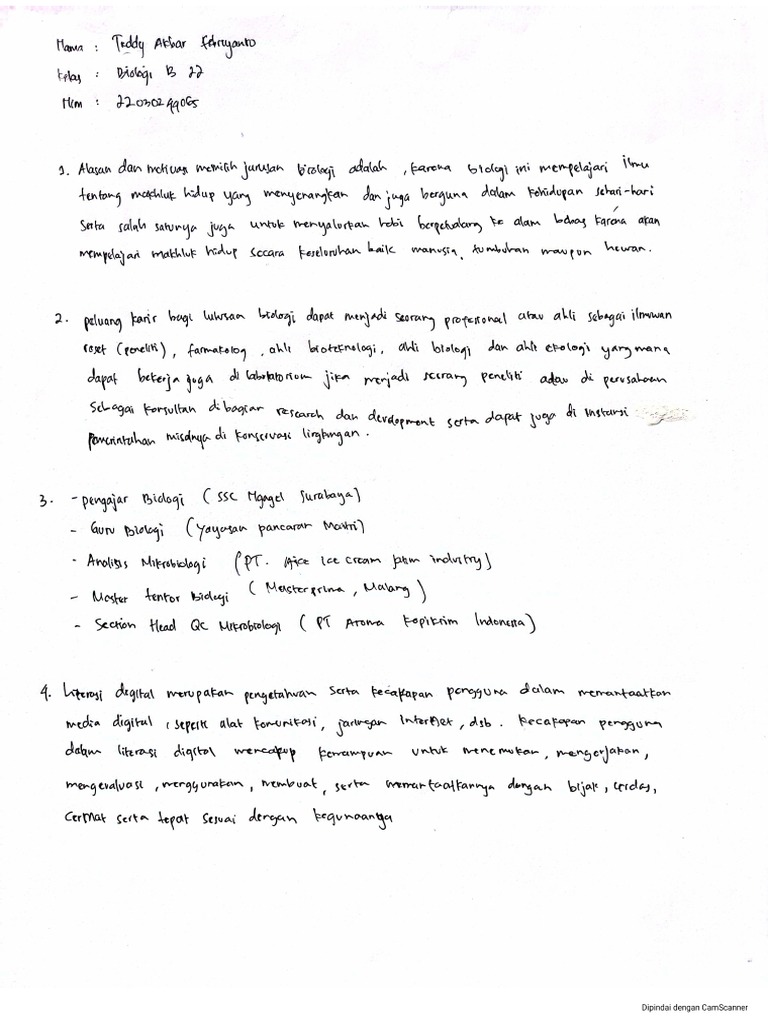 Nama : Teddy Akbar Febriyanto
Kelas : Biologi B 22
Nim : 22030244065
1. Alasan dan motivasi memilih jurusan biologi adalah , karena biologi ini mempelajari ilmu
tentang makhluk hidup yang menyenangkan dan juga berguna dalam kehidupan sehari-hari
Serta salah satunya juga untuk menyalurkan hobi berpetualang ke alam bebas karena akan
mempelajari makhluk hidup secara keseluruhan baik manusia, tumbuhan maupun hewan.
2. peluang karir bagi lulusan biologi dapat menjadi seorang profesional atau ahli sebagai ilmuwan
riset (peneliti), farmakolog , ahli bioteknologi, ahli biologi dan ahli ekologi yang mana
dapat bekerja juga di laboratorium jika menjadi seorang peneliti atau di perusahaan
Sebagai konsultan dibagian research dan development serta dapat juga di instansi
Pemerintahan misalnya di konservasi lingkungan.
3. - pengajar Biologi (SSC Ngagel Surabaya)
- Guru Biologi (Yayasan pancaran Maitri)
- Analisis Mikrobiologi (PT. Aice Ice cream jatim industry)
- Master tentor Biologi (Masterprima, Malang)
- Section Head QC Mikrobiologi (PT Aroma Kopikrim Indonesia)
4. Literasi digital merupakan pengetahuan serta kecakapan pengguna dalam memanfaatkan
media digital, seperti alat komunikasi, jaringan internet, dsb. Kecakapan pengguna
dalam literasi digital mencakup kemampuan untuk menemukan, mengerjakan,
mengevaluasi, menggunakan, membuat, serta memanfaatkannya dengan bijak, cerdas,
cermat serta tepat sesuai dengan kegunaanya
Dipindai dengan CamScanner